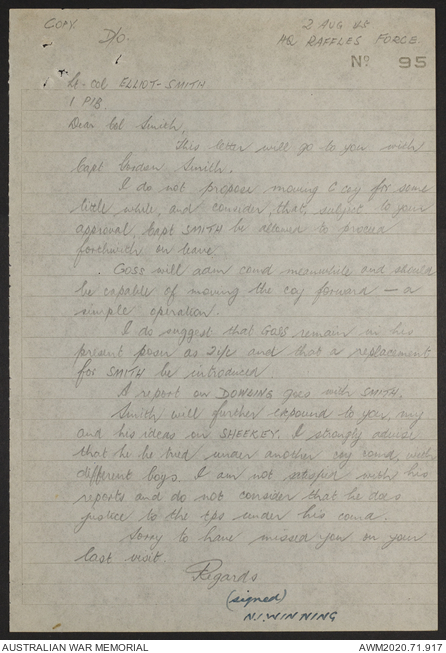 COPY. 2 AUG 45
D/O. HQ RAFFLES FORCE.
No 95
Lt-Col ELLIOT-SMITH
1 PIB
Dear Col Smith,
This letter will go to you with
Capt Gordon Smith.
I do not propose moving C coy for some
little while, and consider, that, subject to your
approval, Capt SMITH be allowed to proceed
forthwith on leave.
GOSS will adm comd meanwhile and should
be capable of moving the coy forward - a
simple operation.
I do suggest that GOSS remain in his
present posn as 2ic and that a replacement
for SMITH be introduced.
A report on DOWSING goes with SMITH.
Smith will further expound to you, my
and his ideas on SHEEKEY. I strongly advise
that he be tried under another coy comd, with
different boys. I am not satisfied with his
reports and do not consider that he does
justice to the tps under his comd.
Sorry to have missed you on your
last visit.
Regards
(signed)
N.I. WINNING
AUSTRALIAN WAR MEMORIAL AWM2020.71.917